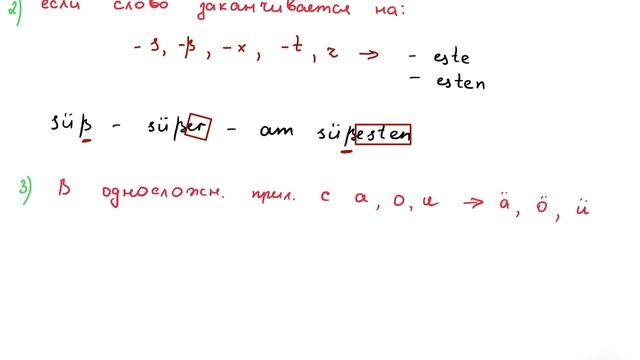 2) если слово заканчивается на:
- s, -ß, -x, -t, z → - este
- esten
süß - süßer - am süßesten
3) В односложн. прил. с a, o, u → ä, ö, ü